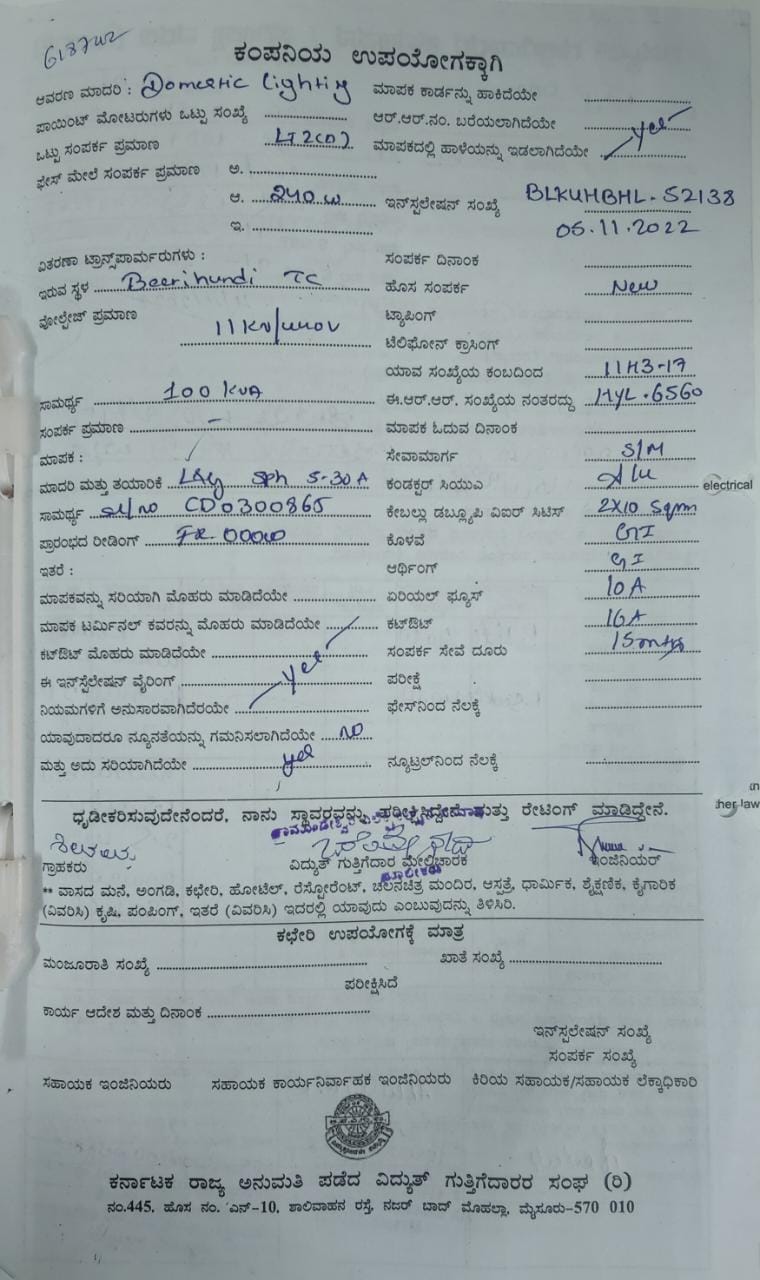 618742
ಕಂಪನಿಯ ಉಪಯೋಗಕ್ಕಾಗಿ
ಆವರಣ ಮಾದರಿ : Domestic lighting ಮಾಪಕ ಕಾರ್ಡನ್ನು ಹಾಕಿದೆಯೇ
ಪಾಯಿಂಟ್ ಮೋಟರುಗಳು ಒಟ್ಟು ಸಂಖ್ಯೆ ಆರ್.ಆರ್.ನಂ. ಬರೆಯಲಾಗಿದೆಯೇ
ಒಟ್ಟು ಸಂಪರ್ಕ ಪ್ರಮಾಣ ಮಾಪಕದಲ್ಲಿ ಹಾಳೆಯನ್ನು ಇಡಲಾಗಿದೆಯೇ yes
ಫೇಸ್ ಮೇಲೆ ಸಂಪರ್ಕ ಪ್ರಮಾಣ ಅ.
ಆ. 240 w ಇನ್‌ಸ್ಪಲೇಷನ್ ಸಂಖ್ಯೆ BLKUHBHL.52138
ಇ. 05.11.2022
ವಿತರಣಾ ಟ್ರಾನ್ಸ್‌ಪಾರ್ಮರುಗಳು : ಸಂಪರ್ಕ ದಿನಾಂಕ
ಇರುವ ಸ್ಥಳ Beerihundi TC ಹೊಸ ಸಂಪರ್ಕ New
ವೋಲ್ಟೇಜ್ ಪ್ರಮಾಣ 11 KV/440V ಟ್ಯಾಪಿಂಗ್
ಟೆಲಿಫೋನ್ ಕ್ರಾಸಿಂಗ್
ಯಾವ ಸಂಖ್ಯೆಯ ಕಂಬದಿಂದ 11H3-17
ಸಾಮರ್ಥ್ಯ 100 KVA ಈ.ಆರ್.ಆರ್. ಸಂಖ್ಯೆಯ ನಂತರದ್ದು HYL.6560
ಸಂಪರ್ಕ ಪ್ರಮಾಣ - ಮಾಪಕ ಓದುವ ದಿನಾಂಕ
ಮಾಪಕ : ಸೇವಾಮಾರ್ಗ S/M
ಮಾದರಿ ಮತ್ತು ತಯಾರಿಕೆ L&G Sph 5-30 A ಕಂಡಕ್ಟರ್ ಸಿಯುವಿ electrical
ಸಾಮರ್ಥ್ಯ Sl/no CD0300865 ಕೇಬಲ್ಲು ಡಬ್ಲ್ಯೂಪಿ ವಿಐರ್ ಸಿಟಿಸ್ 2X10 Sqmm
ಪ್ರಾರಂಭದ ರೀಡಿಂಗ್ ಕೊಳವೆ GI
ಇತರೆ : ಆರ್ಥಿಂಗ್ GI
ಮಾಪಕವನ್ನು ಸರಿಯಾಗಿ ಮೊಹರು ಮಾಡಿದೆಯೇ ಏರಿಯಲ್ ಫ್ಯೂಸ್ 10A
ಮಾಪಕ ಟರ್ಮಿನಲ್ ಕವರನ್ನು ಮೊಹರು ಮಾಡಿದೆಯೇ ಕಟ್‌ಔಟ್ 16A
ಕಟ್‌ಔಟ್ ಮೊಹರು ಮಾಡಿದೆಯೇ ಸಂಪರ್ಕ ಸೇವೆ ದೂರು 15 mtrs
ಈ ಇನ್‌ಸ್ಟಲೇಷನ್ ವೈರಿಂಗ್ yes ಪರೀಕ್ಷೆ
ನಿಯಮಗಳಿಗೆ ಅನುಸಾರವಾಗಿದೆರಯೇ ಫೇಸ್‌ನಿಂದ ನೆಲಕ್ಕೆ
ಯಾವುದಾದರೂ ನ್ಯೂನತೆಯನ್ನು ಗಮನಿಸಲಾಗಿದೆಯೇ no
ಮತ್ತು ಅದು ಸರಿಯಾಗಿದೆಯೇ yes ನ್ಯೂಟ್ರಲ್‌ನಿಂದ ನೆಲಕ್ಕೆ
ಧೃಡೀಕರಿಸುವುದೇನೆಂದರೆ, ನಾನು ಸ್ಥಾವರವನ್ನು ಪರೀಕ್ಷಿಸಿದ್ದೇನೆ ಮತ್ತು ರೇಟಿಂಗ್ ಮಾಡಿದ್ದೇನೆ. her law
ಗ್ರಾಹಕರು ವಿದ್ಯುತ್ ಗುತ್ತಿಗೆದಾರ ಮೇಲ್ವಿಚಾರಕ ಇಂಜಿನಿಯರ್
** ವಾಸದ ಮನೆ, ಅಂಗಡಿ, ಕಛೇರಿ, ಹೋಟೆಲ್, ರೆಸ್ಟೋರೆಂಟ್, ಚಲನಚಿತ್ರ ಮಂದಿರ, ಆಸ್ಪತ್ರೆ, ಧಾರ್ಮಿಕ, ಶೈಕ್ಷಣಿಕ, ಕೈಗಾರಿಕ
(ವಿವರಿಸಿ) ಕೃಷಿ, ಪಂಪಿಂಗ್, ಇತರೆ (ವಿವರಿಸಿ) ಇದರಲ್ಲಿ ಯಾವುದು ಎಂಬುವುದನ್ನು ತಿಳಿಸಿರಿ.
ಕಛೇರಿ ಉಪಯೋಗಕ್ಕೆ ಮಾತ್ರ
ಮಂಜೂರಾತಿ ಸಂಖ್ಯೆ ಖಾತೆ ಸಂಖ್ಯೆ
ಪರೀಕ್ಷಿಸಿದೆ
ಕಾರ್ಯ ಆದೇಶ ಮತ್ತು ದಿನಾಂಕ
ಇನ್‌ಸ್ಪಲೇಷನ್ ಸಂಖ್ಯೆ
ಸಂಪರ್ಕ ಸಂಖ್ಯೆ
ಸಹಾಯಕ ಇಂಜಿನಿಯರು ಸಹಾಯಕ ಕಾರ್ಯನಿರ್ವಾಹಕ ಇಂಜಿನಿಯರು ಕಿರಿಯ ಸಹಾಯಕ/ಸಹಾಯಕ ಲೆಕ್ಕಾಧಿಕಾರಿ
ಕರ್ನಾಟಕ ರಾಜ್ಯ ಅನುಮತಿ ಪಡೆದ ವಿದ್ಯುತ್ ಗುತ್ತಿಗೆದಾರರ ಸಂಘ (ರಿ)
ನಂ.445, ಹೊಸ ನಂ. ಎನ್-10, ಶಾಲಿವಾಹನ ರಸ್ತೆ, ನಜರ್ ಬಾದ್ ಮೊಹಲ್ಲಾ, ಮೈಸೂರು-570 010